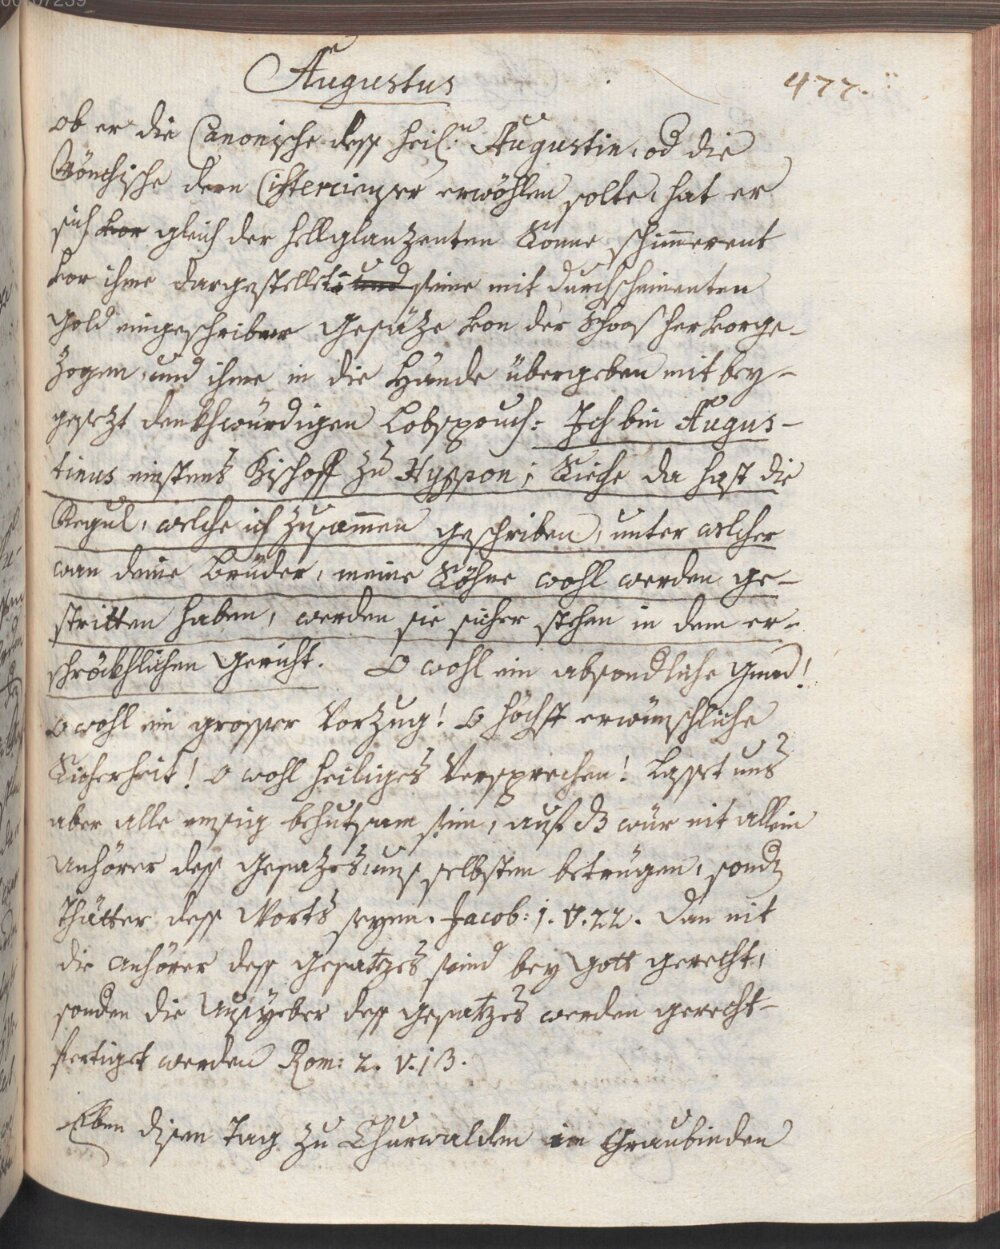 Augustus
477.
ob er die Canonische dess heil:n Augustin, od die
Mönchische deren Cistercienser erwöhlen solte, hat er
sich vor gleich der hellglanzenten Sonne schimmerent
vor ihme dargestellet, und seine mit durchscheinenten
Gold eingeschribne Gesäze von der Schoos hervorge-
zogen, und ihme in die Hände übergeben mit bey-
gesezt denkhwürdigen Lobspruch: Ich bin Augus-
tinus einstens Bischoff zu Hyppon; Siehe da hast die
Regul, welche ich zusammen geschriben, unter welcher
wan deine Brüder, meine Söhne wohl werden ge-
stritten haben, werden sie sicher stehen in dem er-
schröckhlichen Gericht. O wohl ein absondliche Gnad!
O wohl ein grosser Vorzug! O höchst erwünschliche
Sicherheit! O wohl heiliges Versprechen! Lasset uns
aber alle embsig behutsam sein, auf dz wür nit allein
Anhörer dess Gesazes uns selbsten betrügen, sond
Thätter dess Worts seyen. Jacob: 1. V. 22. Dan nit
die Anhörer dess Gesatzes seind bey Gott gerecht,
sonden die Ausyeber dess Gesatzes werden gerecht-
fertiget werden Rom: 2. v. 13.
Eben disen Tag zu Churwalden in Graubinden